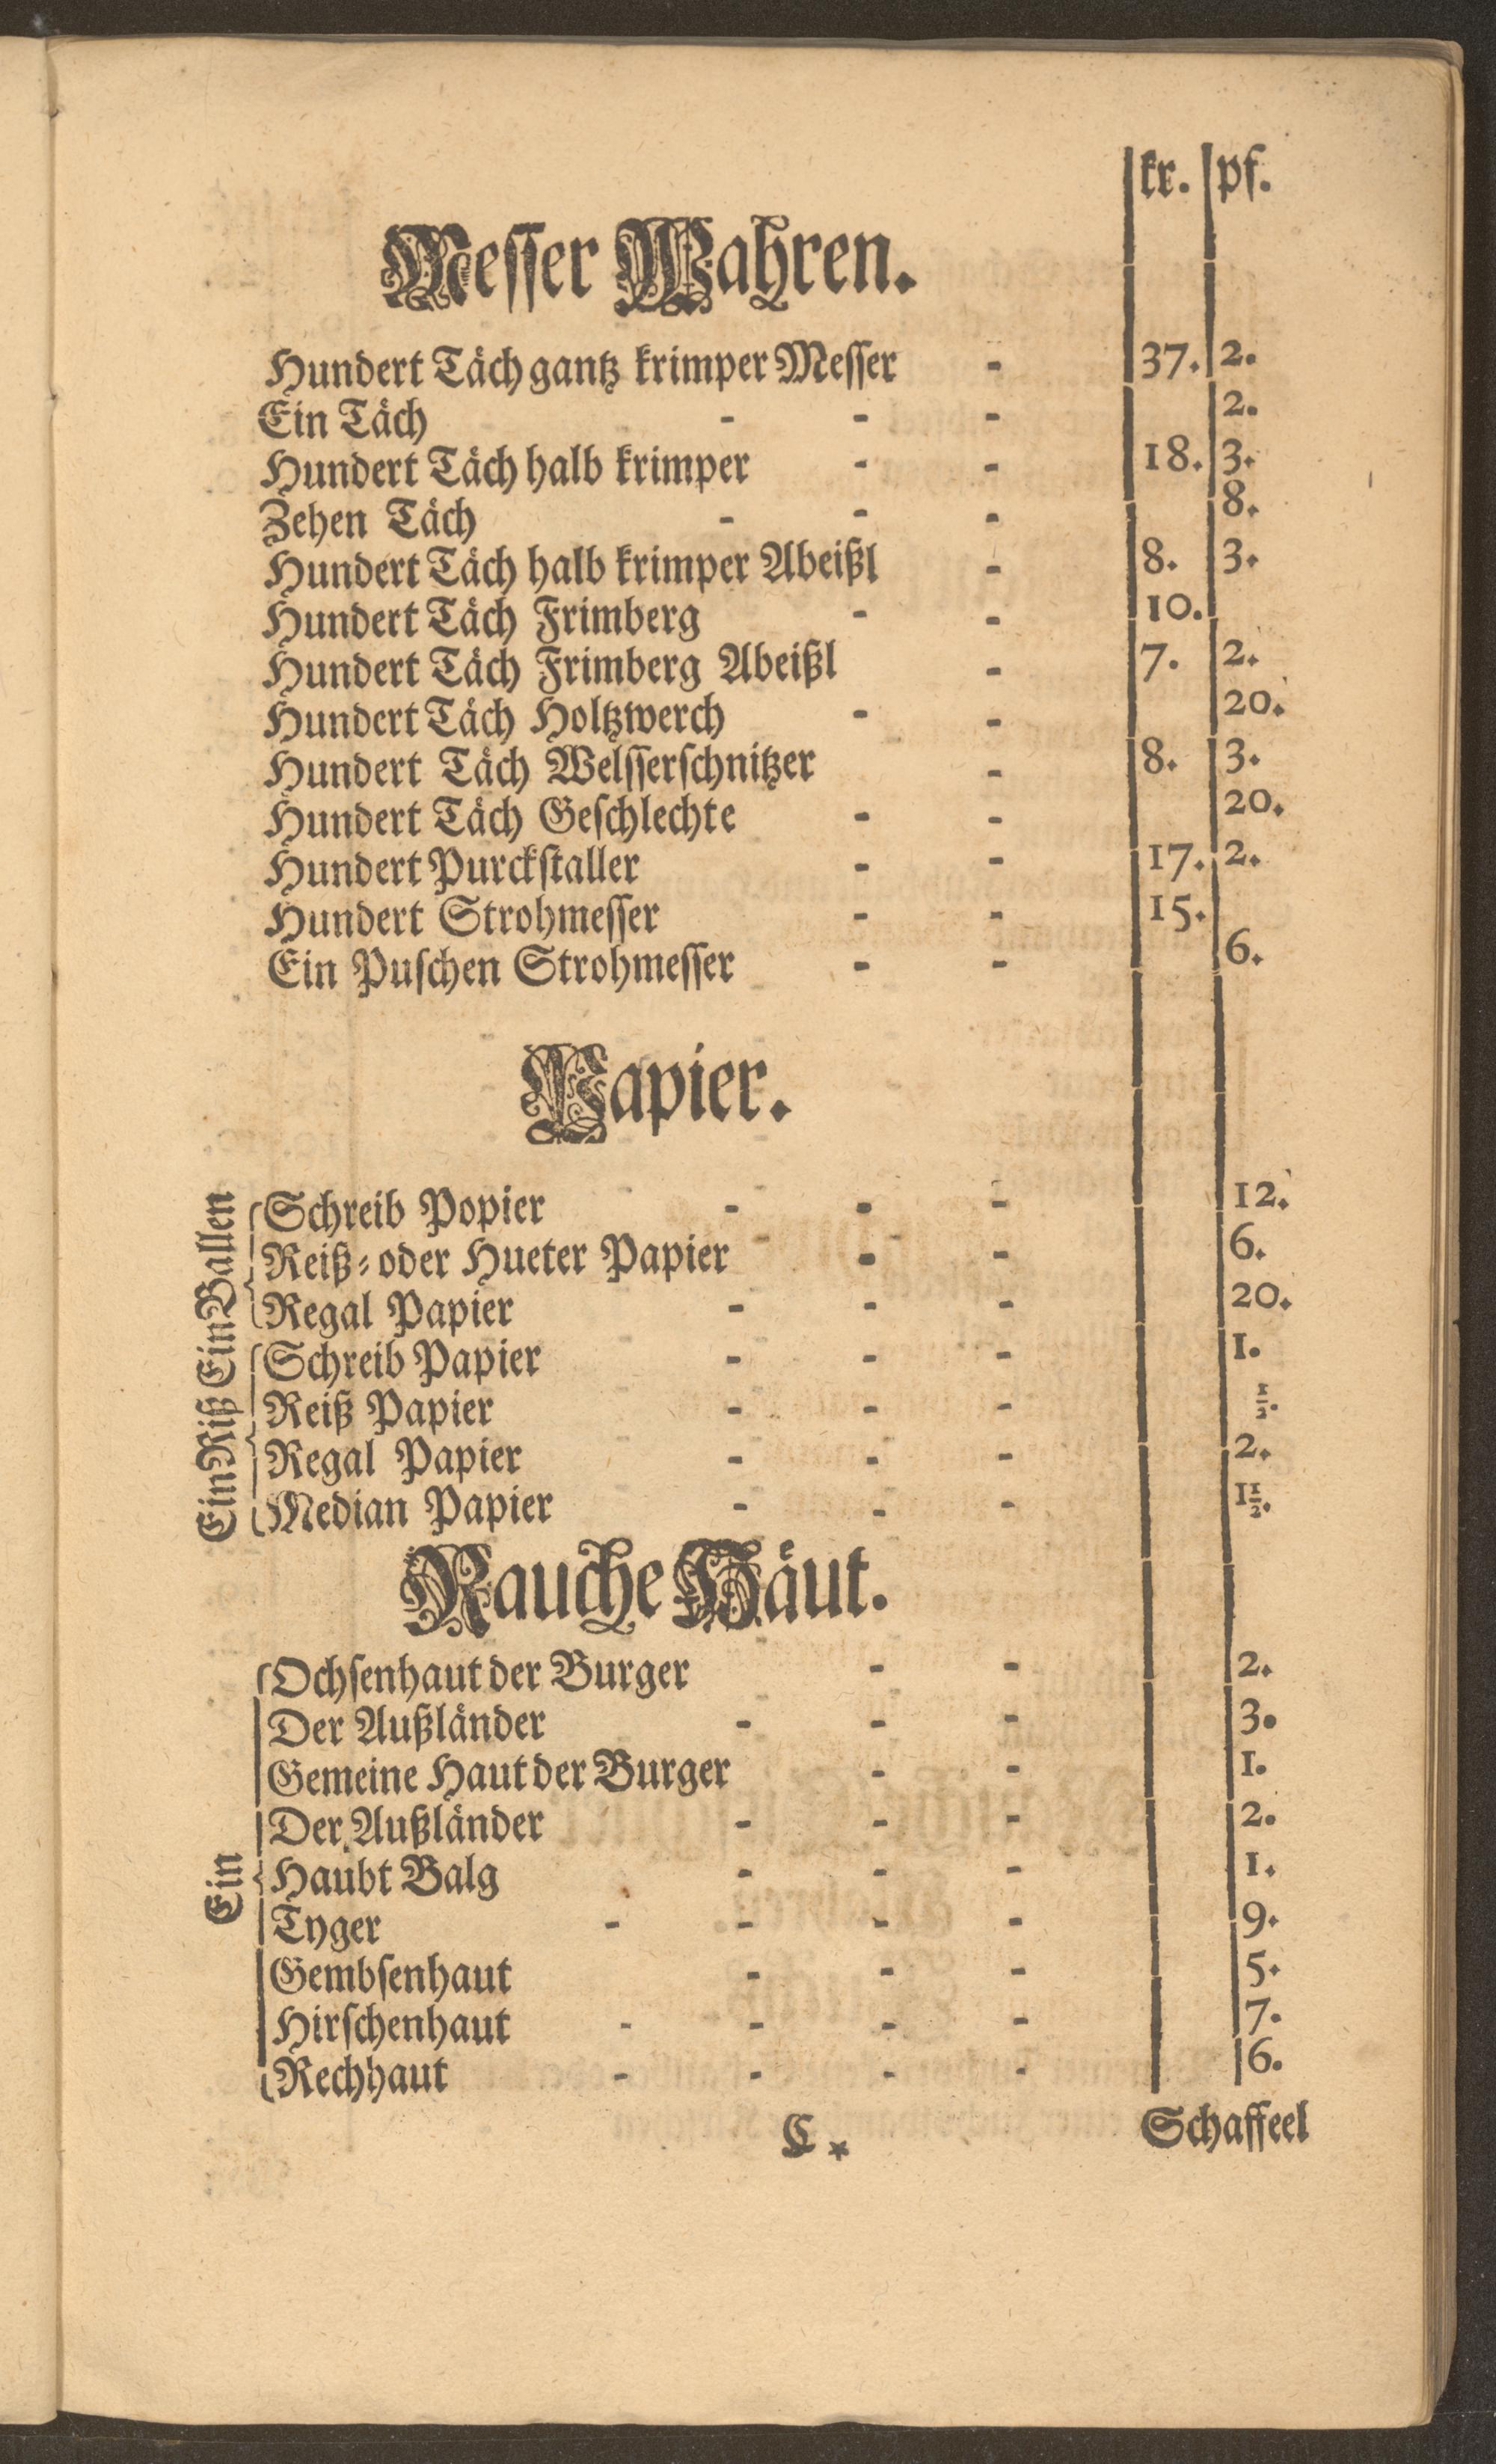 kr. pf.
Messer Wahren.
Hundert Täch gantz krimper Messer - 37. 2.
Ein Täch - - - 2.
Hundert Täch halb krimper - - 18. 3.
Zehen Täch - - - 8.
Hundert Täch halb krimper Abeißl - 8. 3.
Hundert Täch Frimberg - - 10.
Hundert Täch Frimberg Abeißl - 7. 2.
Hundert Täch Holtzwerch - - 20.
Hundert Täch Welsserschnitzer - 8. 3.
Hundert Täch Geschlechte - - 20.
Hundert Purckstaller - - 17. 2.
Hundert Strohmesser - - 15.
Ein Puschen Strohmesser - - 6.
Papier.
Ein Ballen
Schreib Popier - - - 12.
Reiß- oder Hueter Papier - - 6.
Regal Papier - - - 20.
Ein Riß
Schreib Papier - - - 1.
Reiß Papier - - - ½.
Regal Papier - - - 2.
Median Papier - - - 1½.
Rauche Häut.
Ein
Ochsenhaut der Burger - - 2.
Der Außländer - - - 3.
Gemeine Haut der Burger - - 1.
Der Außländer - - - 2.
Haubt Balg - - - 1.
Tyger - - - - 9.
Gembsenhaut - - - 5.
Hirschenhaut - - - - 7.
Rechhaut - - - - 6.
C * Schaffeel